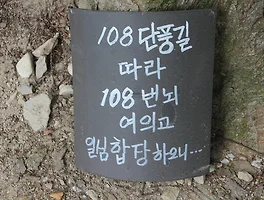 108 단풍길
따라
108 번뇌
여의고
일심합당하오니...